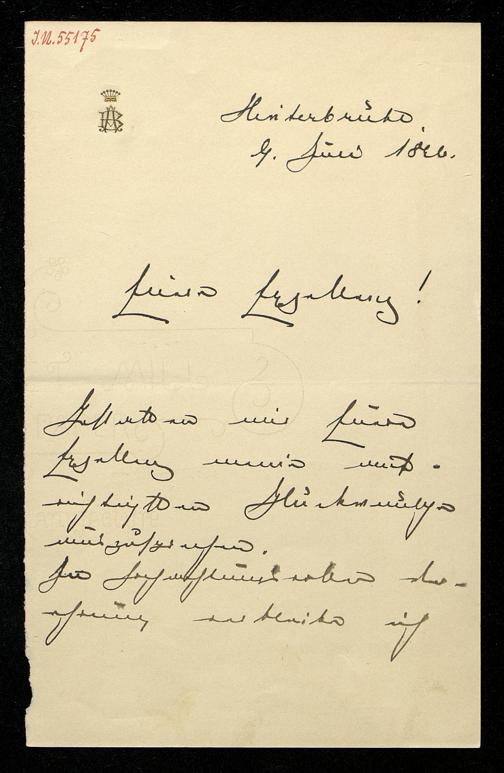 I.N. 55175
Hinterbrühl,
9. Juli 1896.
Euere Exzellenz!
Gestatten mir Euere
Exzellenz meine auf-
richtigsten Glückwünsche
auszusprechen.
In hochachtungsvoller Ver-
ehrung verbleibe ich